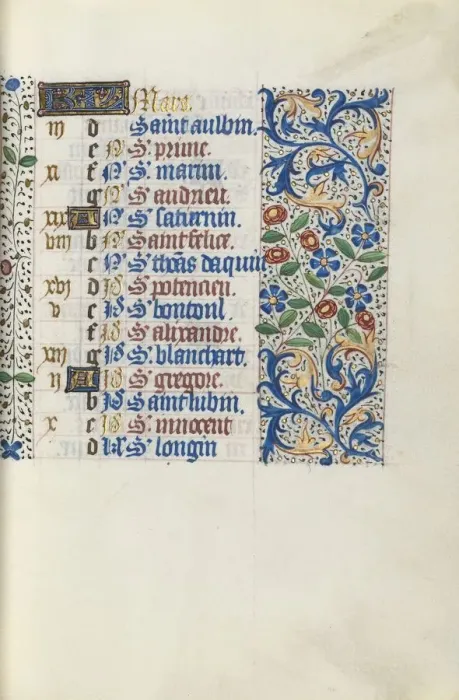 Mars.
iij d Saint aulbin.
e N S. prime.
xi f N S. martin.
g N S. andrieu.
xix A N S. saturnin.
viij b N Saint felice.
c N S. thoas daquin
xvj d S. potencieu.
v e S. bontonl
f S. alixandre.
xiij g S. blanchart.
ij A S. gregoire.
b Saint lubin.
x c S. innocent
d S. longin